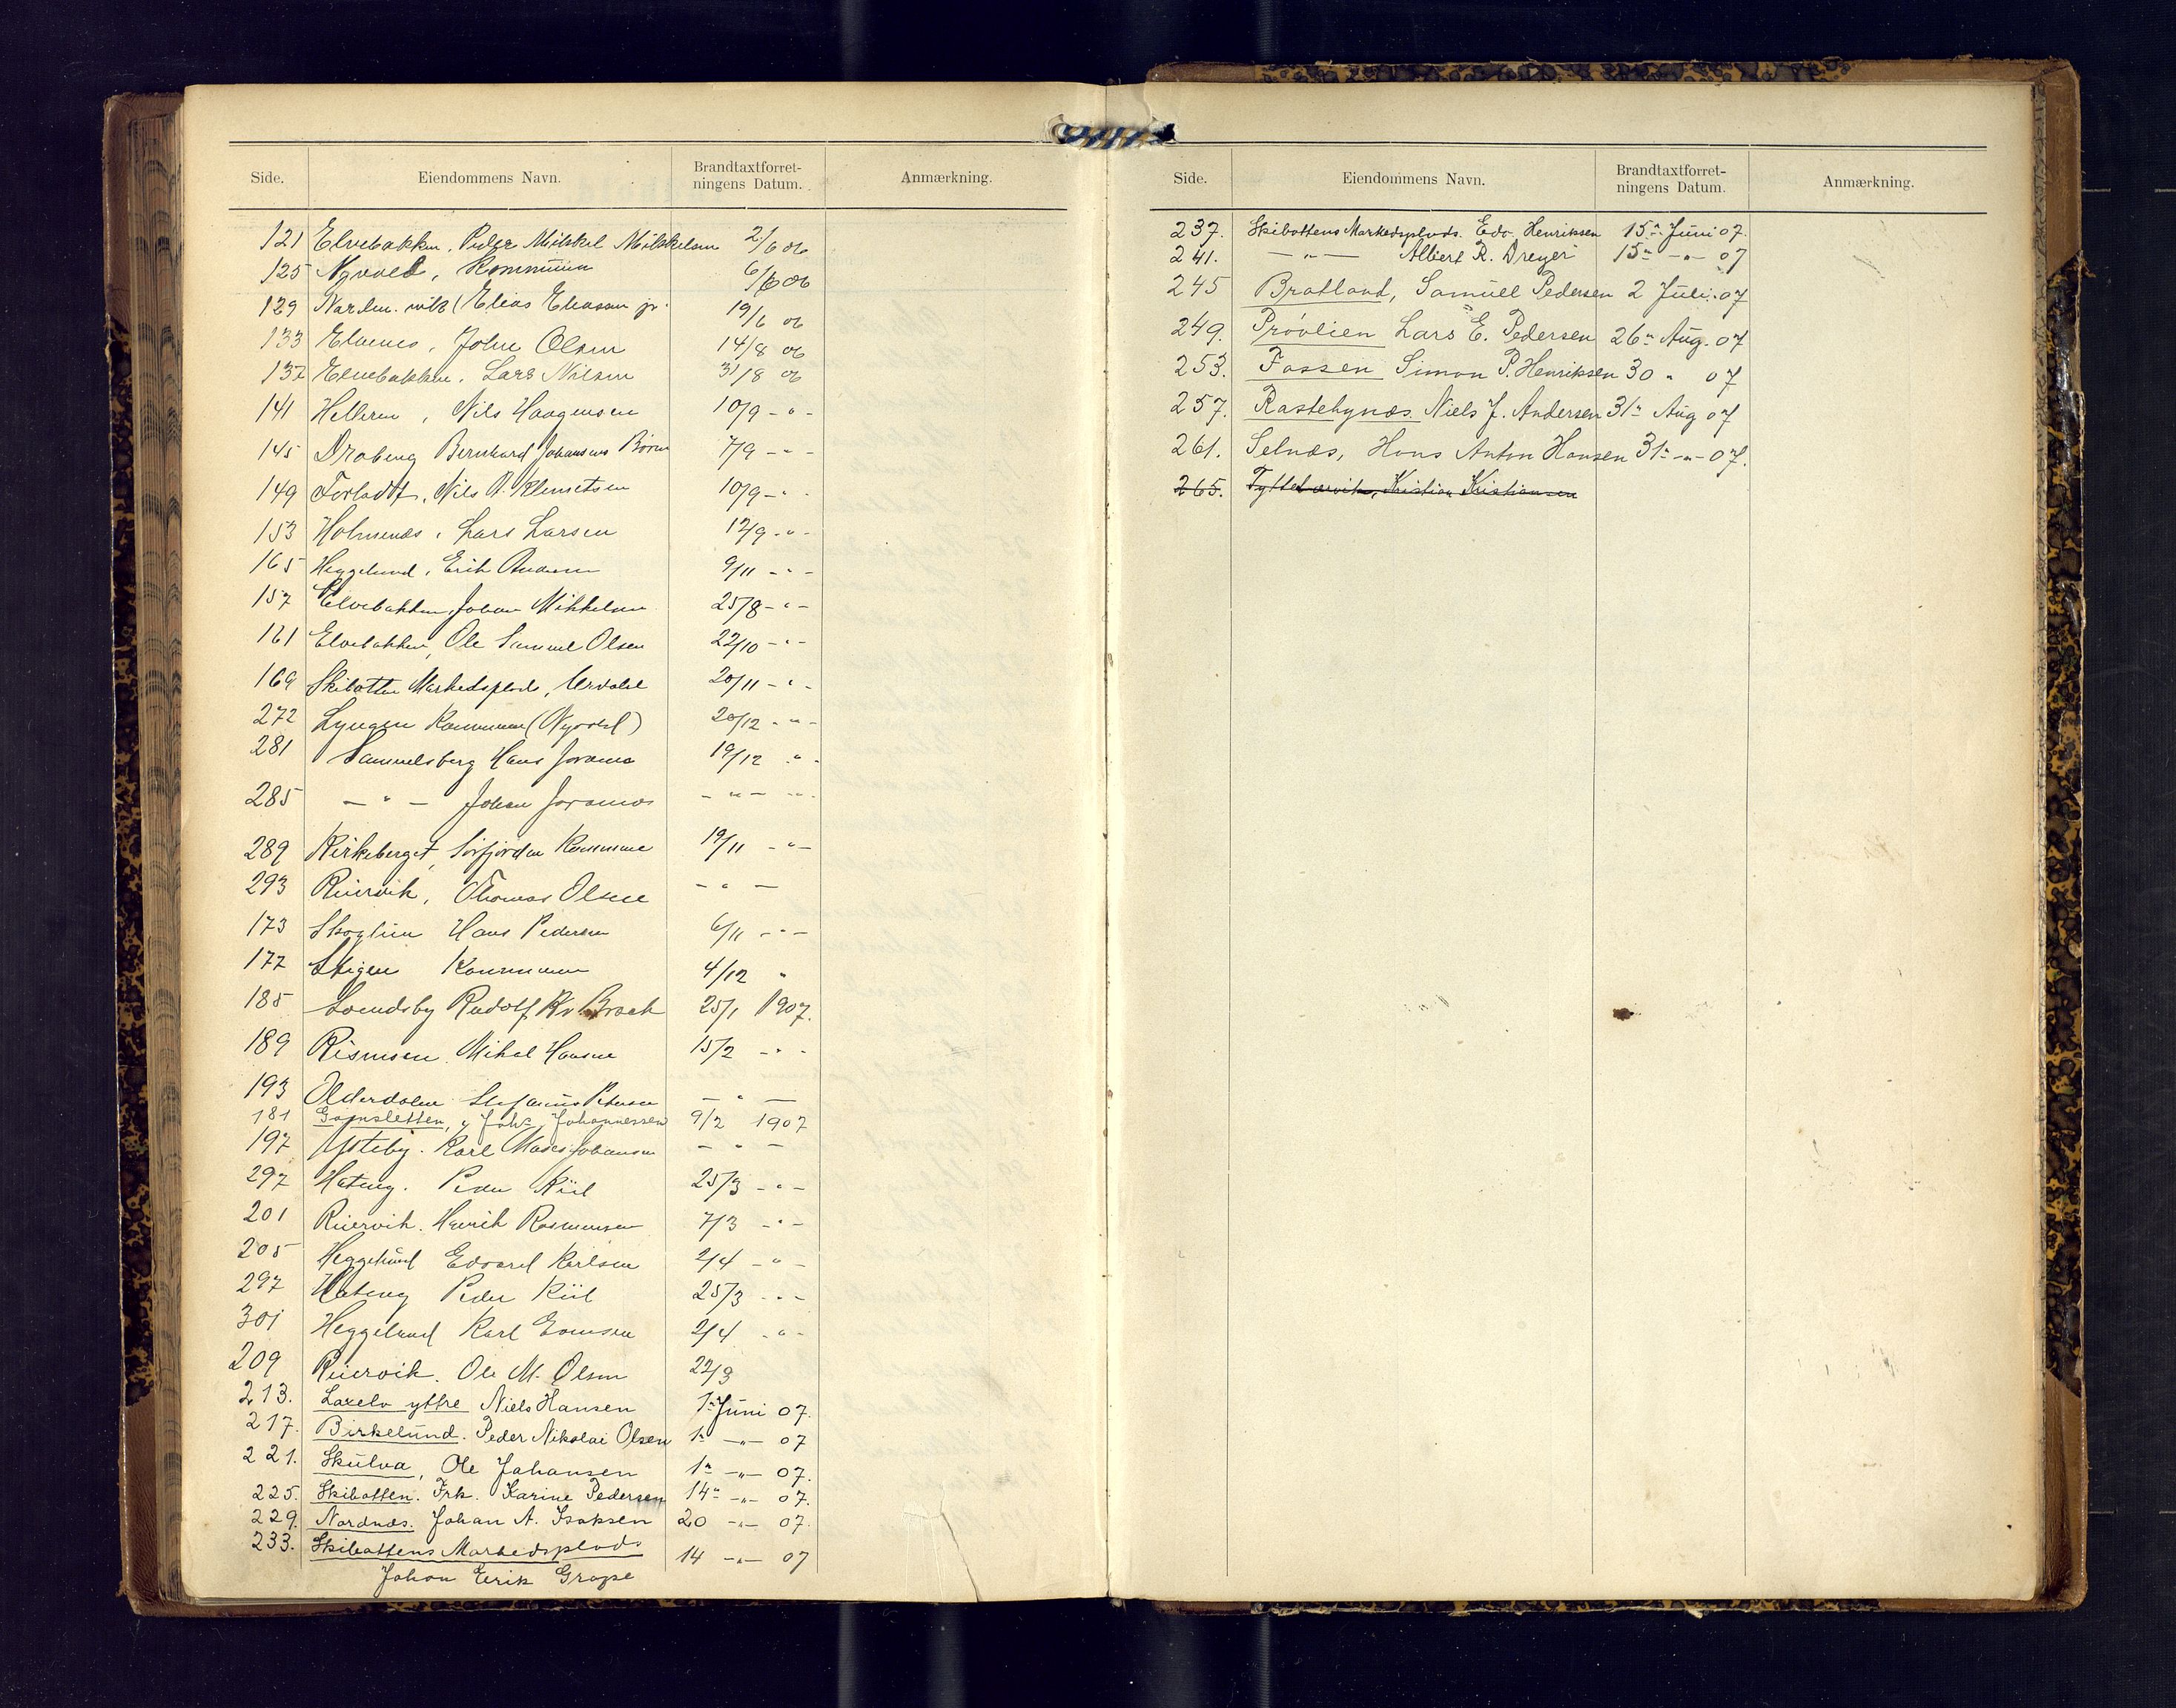 Side. Eiendommens Navn. Brandtaxtforret-ningens Datum. Anmærkning.
121 Elvebakken, Peder Mikkel Mikkelsen 2/6 06
125 Nyvold, Kommunen 6/6 06
129 Elias Eliassen jr. 19/6 06
133 Elvenes, John Olsen 14/8 06
137 Elvebakken. Lars Nilsen 31/8 06
141 Helleren, Nils Haagensen 10/9 - " -
145 Draberg Bernhard Johansens Børn 7/9 - " -
149 Forladt, Nils A. Klemetsen 10/9 - " -
153 Holmenæs, Lars Larsen 12/9 - " -
165 Heggelund, Erik Andersen 9/11 - " -
157 Elvebakken, Johan Mikkelsen 25/8 - " -
161 Elvebakken, Ole Samuel Olsen 22/10 - " -
169 Skibotten Markedsplads, Urdahl 20/11 - " -
272 Lyngen Kommune (Nyvold) 20/12 - " -
281 Samuelsberg Hans Joramo 19/12 - " -
285 — " — Johan Joramo - " - - " -
289 Kirkeberget, Sörfjorden Kommune 19/11 - " -
293 Reiervik, Thomas Olsen - " -
173 Skoglien Hans Pedersen 6/11 - " -
177 Stigen Kommunen 4/12 "
185 Svendsby Rudolf Brock 25/1 1907.
189 Rismoen. Mikal Hansen 15/2 - " -
193 Olderdalen Stefanus Petersen — " —
181 Gamsletten, Joh. Johannessen 9/2 1907
197 Ysteby. Karl Johansen — " —
297 Hateng. Peder Kiil 25/3 - " -
201 Reiervik. Henrik Rasmussen 7/3 - " -
205 Heggelund Edvard Karlsen 2/4 - " -
297 Hateng Peder Kiil 25/3 - " -
301 Heggelund Karl Evensen 2/4 - " -
209 Reiervik. Ole M. Olsen 22/3
213. Laxelv yttre Niels Hansen 1ste Juni 07.
217. Birkelund. Peder Nikolai Olsen 1ste —"— 07
221. Skulva, Ole Johansen 1ste —"— 07.
225. Skibotten. Frk. Karine Pedersen 14de —"— 07.
229. Nordnæs. Johan A. Isaksen 20 —"— 07.
233. Skibottens Markedsplads 14 —"— 07
Johan Eerik Grape
Side. Eiendommens Navn. Brandtaxtforret-ningens Datum. Anmærkning.
237. Skibottens Markedsplads. Edv. Henriksen 15de Juni 07.
241. — " — Albiert R. Dreyer 15de —"— 07
245 Bratland, Samuel Pedersen 2 Juli. 07
249. Prövlien Lars E. Pedersen 26de Aug. 07
253. Fossen Simon P. Henriksen 30 " 07
257. Rastebynæs. Niels J. Andersen 31te Aug 07
261. Selnæs, Hans Anton Hansen 31te —"— 07.
265. Tyttebærvik, Kristian Kristiansen